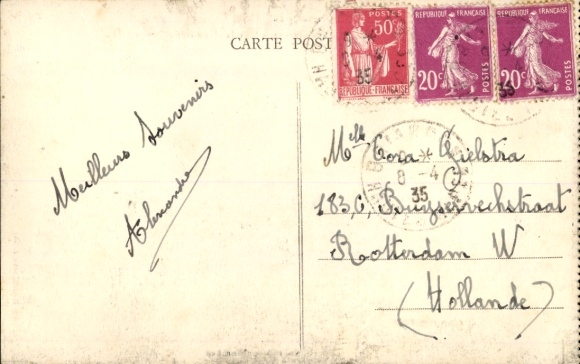 CARTE POST
POSTES 50c
RÉPUBLIQUE-FRANÇAISE
RÉPUBLIQUE FRANÇAISE
20c POSTES
RÉPUBLIQUE FRANÇAISE
20c POSTES
35
35
Meilleurs Souvenirs
Alexandre
Mlle Cora Qielstra
8-4
35
183, C, Buyservechstraat
Rotterdam W
(Hollande)